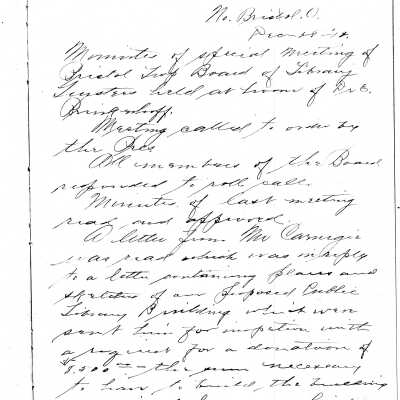 No. Bristol, O.
Minutes of special meeting of
Bristol Twp Board of Library
Trustees held at home of
Meeting called to order by
the Pres
All members of the Board
responded to roll call.
Minutes of last meeting
read and approved.
A letter from Mr Carnegie
was read which was in reply
to a letter containing plans and
sketches of our proposed Public
Library Building which were
sent him for inspection with
a request for a donation of
the sum necessary
to build the building